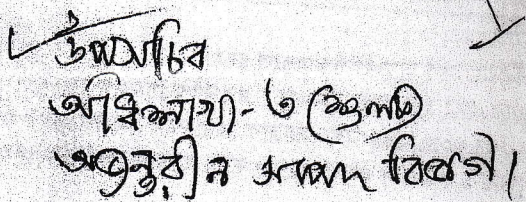 উপসচিব
অধিশাখা-৩ (শুল্ক)
অভ্যন্তরীন সম্পদ বিভাগ।